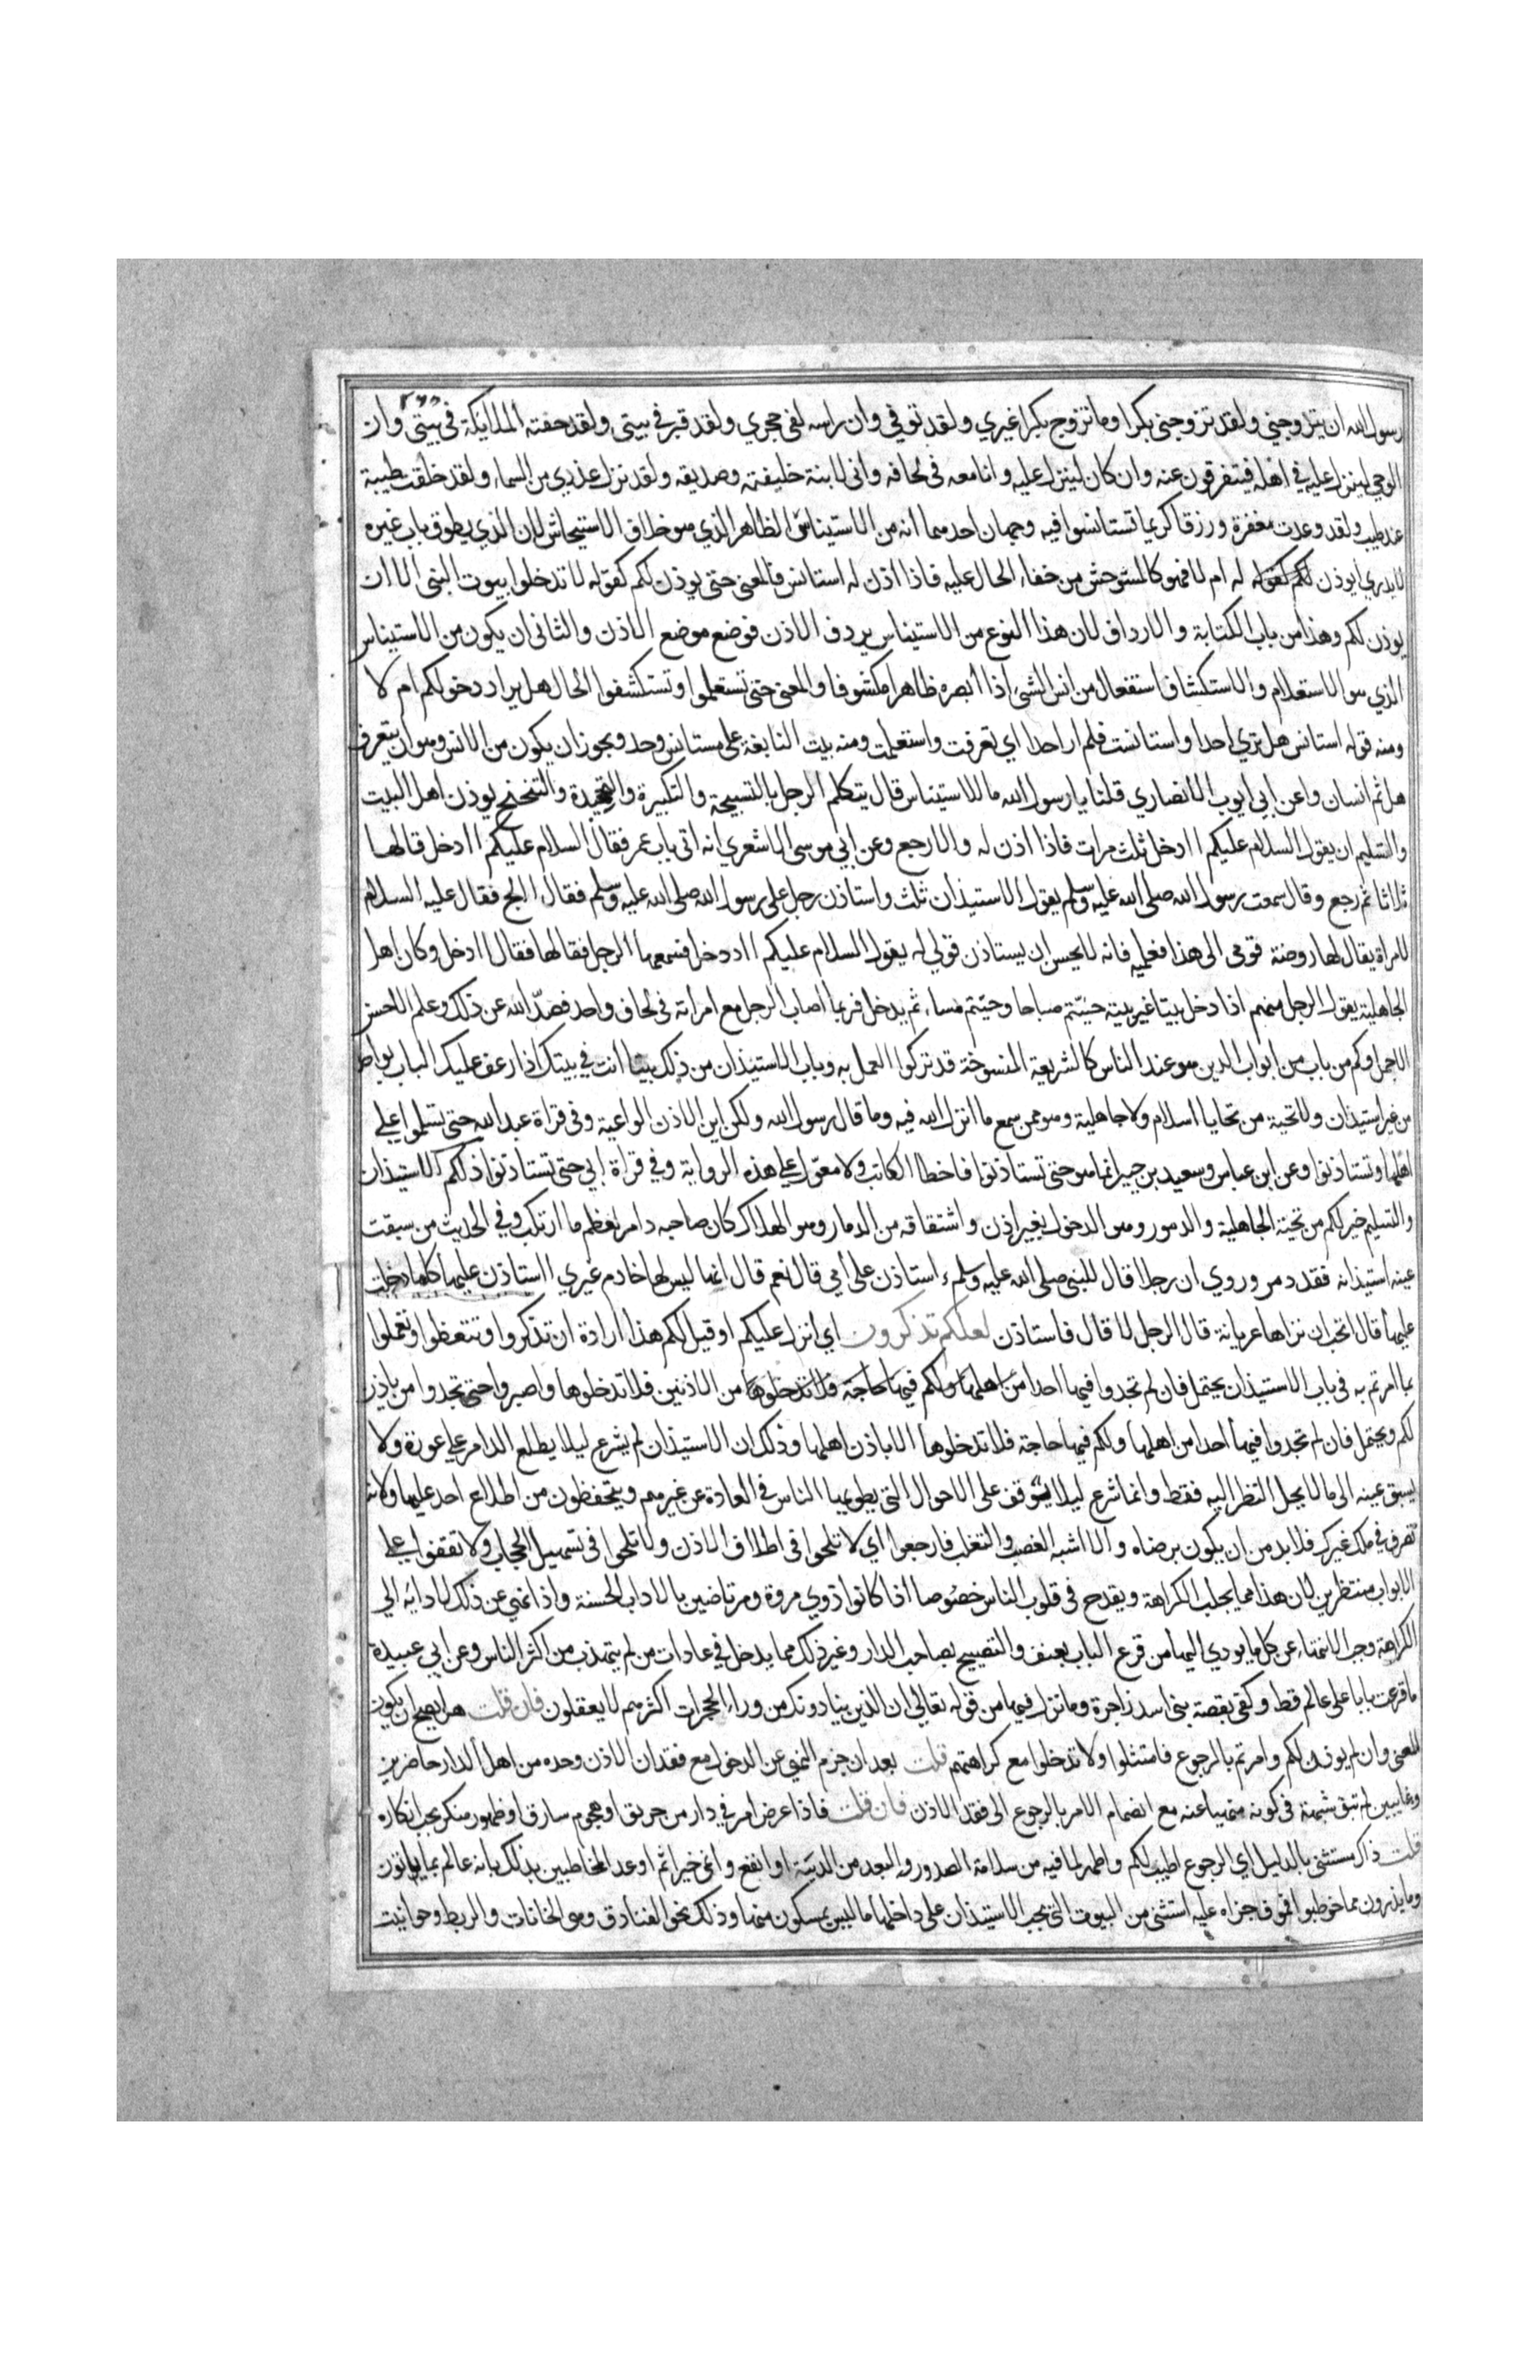 رسول الله ان يتزوجني ولقد تزوجني بكرا وما تزوج بكرا غيري ولقد توفي وان راسه لفي حجري ولقد قبر في بيتي ولقد حفته الملايكة في بيتي وان
الوحي لينزل عليه في اهله فيتفرقون عنه وان كان لينزل عليه وانا معه في لحافه واني لابنة خليفته وصديقه ولقد نزل عذري من السماء ولقد خلقت طيبة
عند طيب ولقد وعدت مغفرة ورزقا كريما تستانسوا فيه وجهان احدهما انه من الاستيناس الظاهر الذي هو خلاف الاستيحاش لان الذي يطوق باب غيره
لا يدري ايوذن لكم كقوله له ام لا فهو كالمستوحش من خفاء الحال عليه فاذا اذن له استانس فالمعنى حتى يوذن لكم كقوله لا تدخلوا بيوت النبى الا ان
يوذن لكم وهذا من باب الكتابة والارداف لان هذا النوع من الاستيناس يردف الاذن فوضع موضع الاذن والثاني ان يكون من الاستيناس
الذي هو الاستعلام والاستكشاف استفعال من انس الشيء اذا ابصره ظاهرا مكشوفا والمعنى حتى تستعلموا وتستكشفوا الحال هل يراد دخولكم ام لا
ومنه قوله استانس هل ترى احدا واستانست فلم ار احدا اي تعرفت واستعلمت ومنه بيت النابغة على مستانس وحد ويجوز ان يكون من الانس وهو ان يتعرف
هل ثم انسان وعن ابي ايوب الانصاري قلنا يا رسول الله ما الاستيناس قال يتكلم الرجل بالتسبيحة والتكبيرة والتحميدة والتنحنح يوذن اهل البيت
والتسليم ان يقول السلام عليكم اادخل ثلث مرات فاذا اذن له والا رجع وعن ابي موسى الاشعري انه اتى باب عمر فقال السلام عليكم اادخل قالها
ثلاثا ثم رجع وقال سمعت رسول الله صلى الله عليه وسلم يقول الاستيذان ثلث واستاذن رجل على رسول الله صلى الله عليه وسلم فقال االج فقال عليه السلام
لامراة يقال لها روضة قومي الى هذا فعلميه فانه لا يحسن ان يستاذن قولي له يقول السلام عليكم اادخل فسمعها الرجل فقالها فقال ادخل وكان اهل
الجاهلية يقول الرجل منهم اذا دخل بيتا غير بيته حييتم صباحا وحييتم مساء ثم يدخل فربما اصاب الرجل مع امراته في لحاف واحد فصد الله عن ذلك وعلم الاحسن
الاجمل وكم من باب من ابواب الدين هو عند الناس كالشريعة المنسوخة قد تركوا العمل به وباب الاستيذان من ذلك بينا انت في بيتك اذا رعف عليك الباب بواحد
من غير استيذان ولا تحية من تحايا اسلام ولا جاهلية وهو ممن سمع ما انزل الله فيه وما قال رسول الله ولكن اين الاذن الواعية وفي قراة عبد الله حتى تسلموا على
اهلها وتستاذنوا وعن ابن عباس وسعيد بن جبير انما هو حتى تستاذنوا فاخطا الكاتب ولا معول على هذه الرواية وفي قراة ابي حتى تستاذنوا ذلكم الاستيذان
والتسليم خير لكم من تحية الجاهلية والدمور وهو الدخول بغير اذن واشتقاقه من الدمار وهو الهلاك كان صاحبه دامر لعظم ما ارتكب وفي الحديث من سبقت
عينه استيذانه فقد دمر وروي ان رجلا قال للنبى صلى الله عليه وسلم ء استاذن على امي قال نعم قال انها ليس لها خادم غيري ااستاذن عليها كلما دخلت
عليها قال اتحب ان تراها عريانة قال الرجل لا قال فاستاذن لعلكم تذكرون اي انزل عليكم او قيل لكم هذا ارادة ان تذكروا وتتعظوا وتعملوا
بما امرتم به في باب الاستيذان يحتمل فان لم تجدوا فيها احدا من اهلها ولكم فيها حاجة فلا تدخلوها من الاذنين فلا تدخلوها واصبروا حتى تجدوا من ياذن
لكم ويحتمل فان لم تجدوا فيها احدا من اهلها ولكم فيها حاجة فلا تدخلوها الا باذن اهلها وذلك ان الاستيذان لم يشرع ليلا يطلع الدامر على عورة ولا
يسبق عينه الى ما لا يحل النظر اليه فقط وانما شرع ليلا يتوقف على الاحوال التي يطويها الناس في العادة عن غيرهم ويتحفظون من اطلاع احد عليها ولانه
تصرف في ملك غيرك فلا بد من ان يكون برضاه والا اشبه الغصب والتغلب فارجعوا اي لا تلحوا في اطلاق الاذن ولا تلحوا في تسهيل الحجاب ولا تقفوا على
الابواب منتظرين لان هذا مما يجلب الكراهة ويقدح في قلوب الناس خصوصا اذا كانوا ذوي مروة ومرتاضين بالاداب الحسنة واذا نهي عن ذلك لادائه الى
الكراهة وجب الانتهاء عن كل ما يودي اليها من قرع الباب بعنف والتصييح بصاحب الدار وغير ذلك مما يدخل في عادات من لم يتهذب من اكثر الناس وعن ابي عبيدة
ما قرعت بابا على عالم قط وكفى بقصة بني اسد زاجرة وما نزل فيها من قوله تعالى ان الذين ينادونك من وراء الحجرات اكثرهم لا يعقلون فان قلت هل يصح ان يكون
المعنى وان لم يوذن لكم وامرتم بالرجوع فامتثلوا ولا تدخلوا مع كراهتهم قلت بعد ان جزم النهي عن الدخول مع فقدان الاذن وحده من اهل الدار حاضرين
وغايبين لم تبق شبهة في كونه منهيا عنه مع انضمام الامر بالرجوع الى فقد الاذن فان قلت فاذا عرض امر في دار من حريق او هجوم سارق او ظهور منكر يجب انكاره
قلت ذاك مستثنى بالدليل اي الرجوع اطيب لكم واطهر لما فيه من سلامة الصدور والبعد من الريبة او انفع وانمى خيرا ثم اوعد المخاطبين بذلك بانه عالم بما ياتون
وما يذرون مما خوطبوا فموف جزاه عليه استثنى من البيوت التي يجب الاستيذان على داخلها ما ليس بمسكون منها وذلك نحو الفنادق وهي الخانات والربط وحوانيت